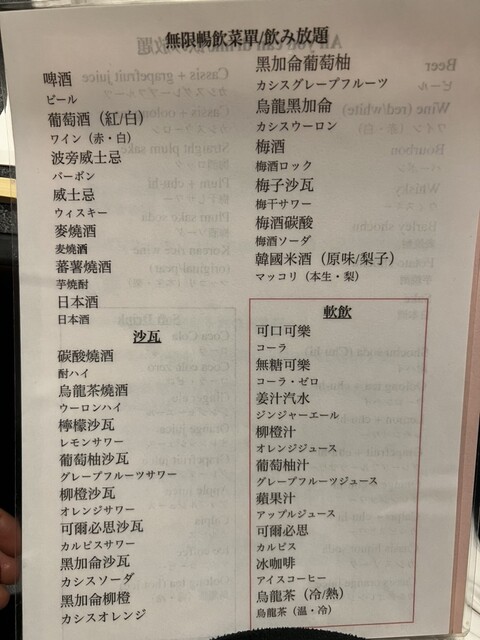 無限暢飲菜單/飲み放題
啤酒
ビール
葡萄酒（紅/白）
ワイン（赤・白）
波旁威士忌
バーボン
威士忌
ウィスキー
麥燒酒
麦焼酒
蕃薯燒酒
芋焼酎
日本酒
日本酒
沙瓦
碳酸燒酒
酎ハイ
烏龍茶燒酒
ウーロンハイ
檸檬沙瓦
レモンサワー
葡萄柚沙瓦
グレープフルーツサワー
柳橙沙瓦
オレンジサワー
可爾必思沙瓦
カルピスサワー
黑加侖沙瓦
カシスソーダ
黑加侖柳橙
カシスオレンジ
黑加侖葡萄柚
カシスグレープフルーツ
烏龍黑加侖
カシスウーロン
梅酒
梅酒ロック
梅子沙瓦
梅干サワー
梅酒碳酸
梅酒ソーダ
韓國米酒（原味/梨子）
マッコリ（本生・梨）
軟飲
可口可樂
コーラ
無糖可樂
コーラ・ゼロ
姜汁汽水
ジンジャーエール
柳橙汁
オレンジジュース
葡萄柚汁
グレープフルーツジュース
蘋果汁
アップルジュース
可爾必思
カルピス
冰咖啡
アイスコーヒー
烏龍茶（冷/熱）
烏龍茶（温・冷）